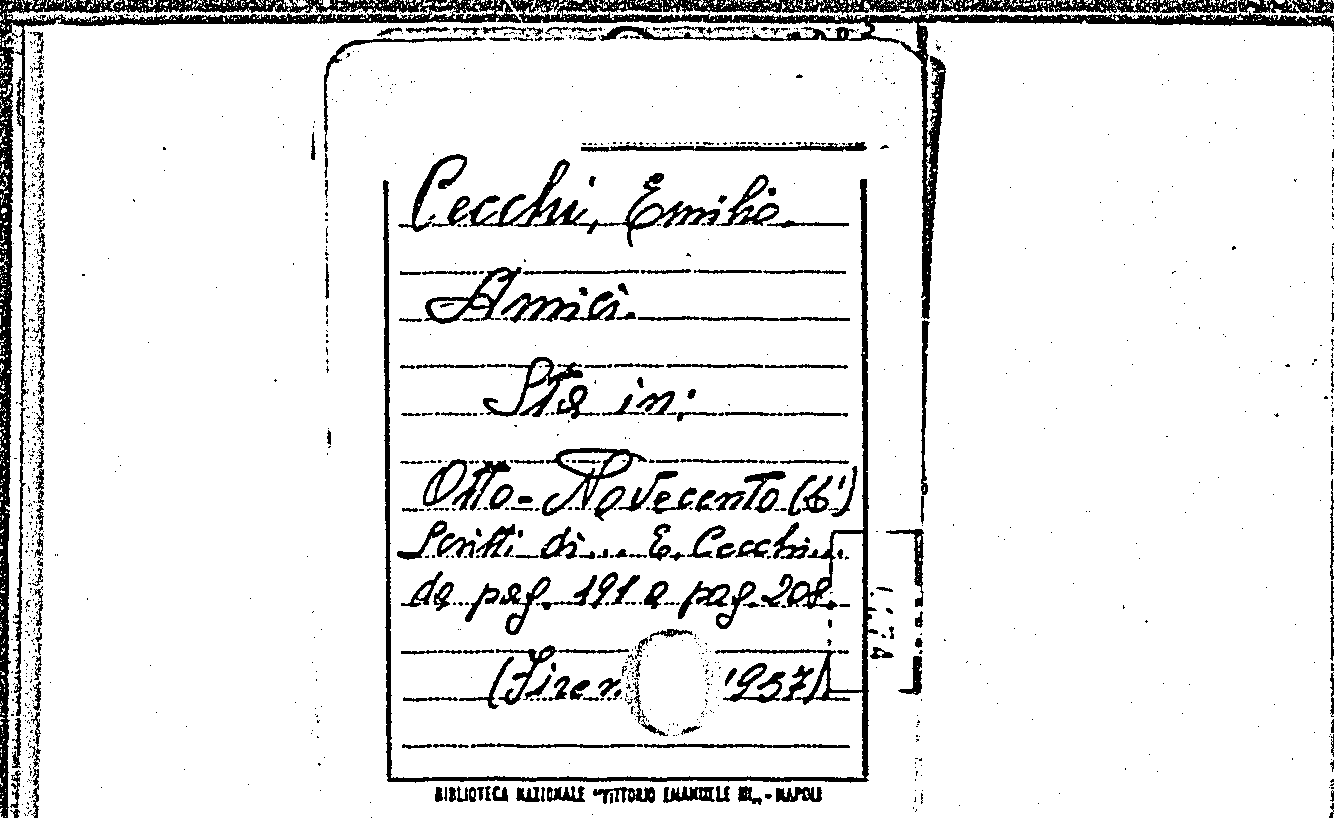 Cecchi, Emilio.
Amici.
Sta in:
Otto-Novecento (L')
Scritti di... E. Cecchi...
da pag. 191 a pag. 208.
(Firen 1957)
BIBLIOTECA NAZIONALE "VITTORIO EMANUELE III„ - NAPOLI